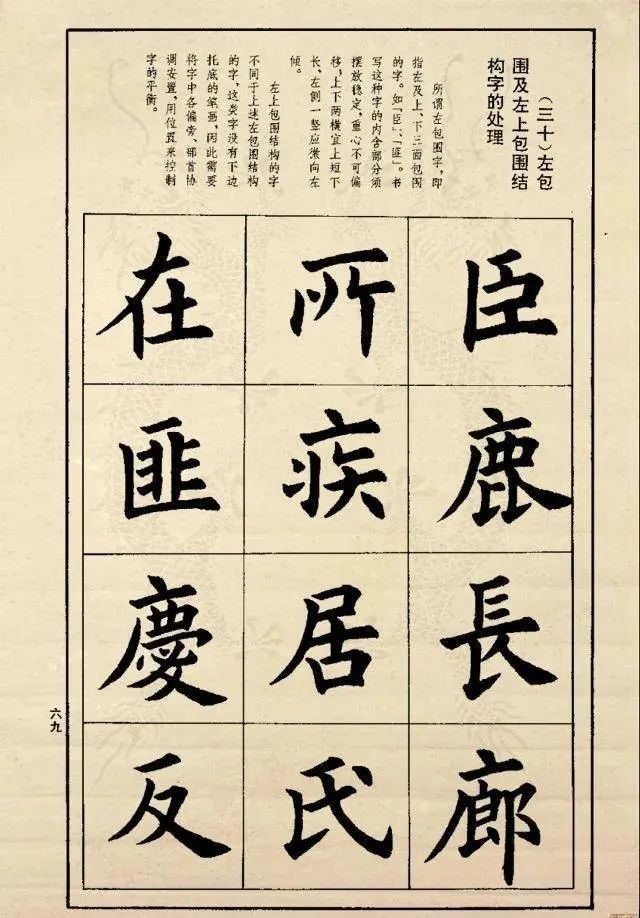 （三十）左包
围及左上包围结
构字的处理
所谓左包围字，即
指左及上、下三面包围
的字。如“臣”、“匪”。书
写这种字的内含部分须
摆放稳定，重心不可偏
移，上下两横宜上短下
长、左侧一竖应微向左
倾。
左上包围结构的字
不同于上述左包围结构
的字，这类字没有下边
托底的笔画，因此需要
将字中各偏旁、部首协
调安置，用位置来控制
字的平衡。
臣
鹿
長
廊
所
疾
居
氏
在
匪
慶
反
六九